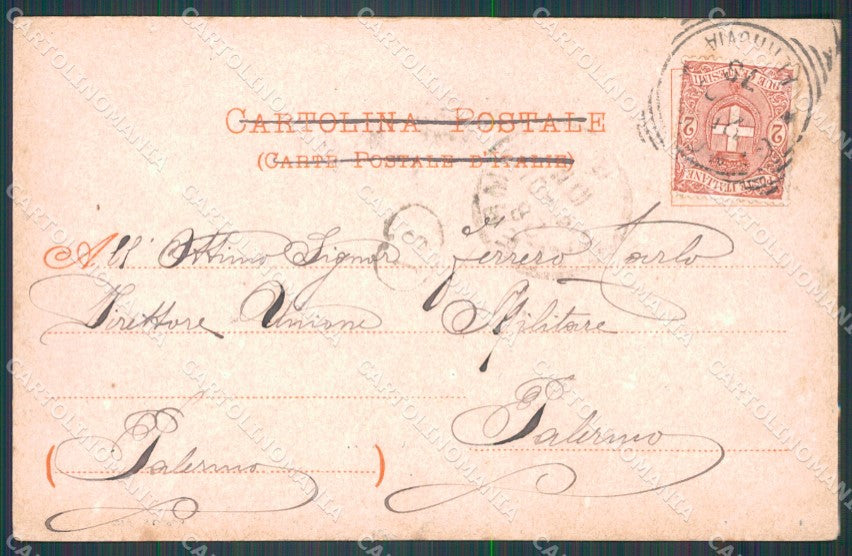 CARTOLINA POSTALE
(CARTE POSTALE D'ITALIE)
All' Ottimo Signor Ferrero Carlo
Direttore Unione Militare
Palermo
(Palermo)
2 2
CARTOLINOMANIA